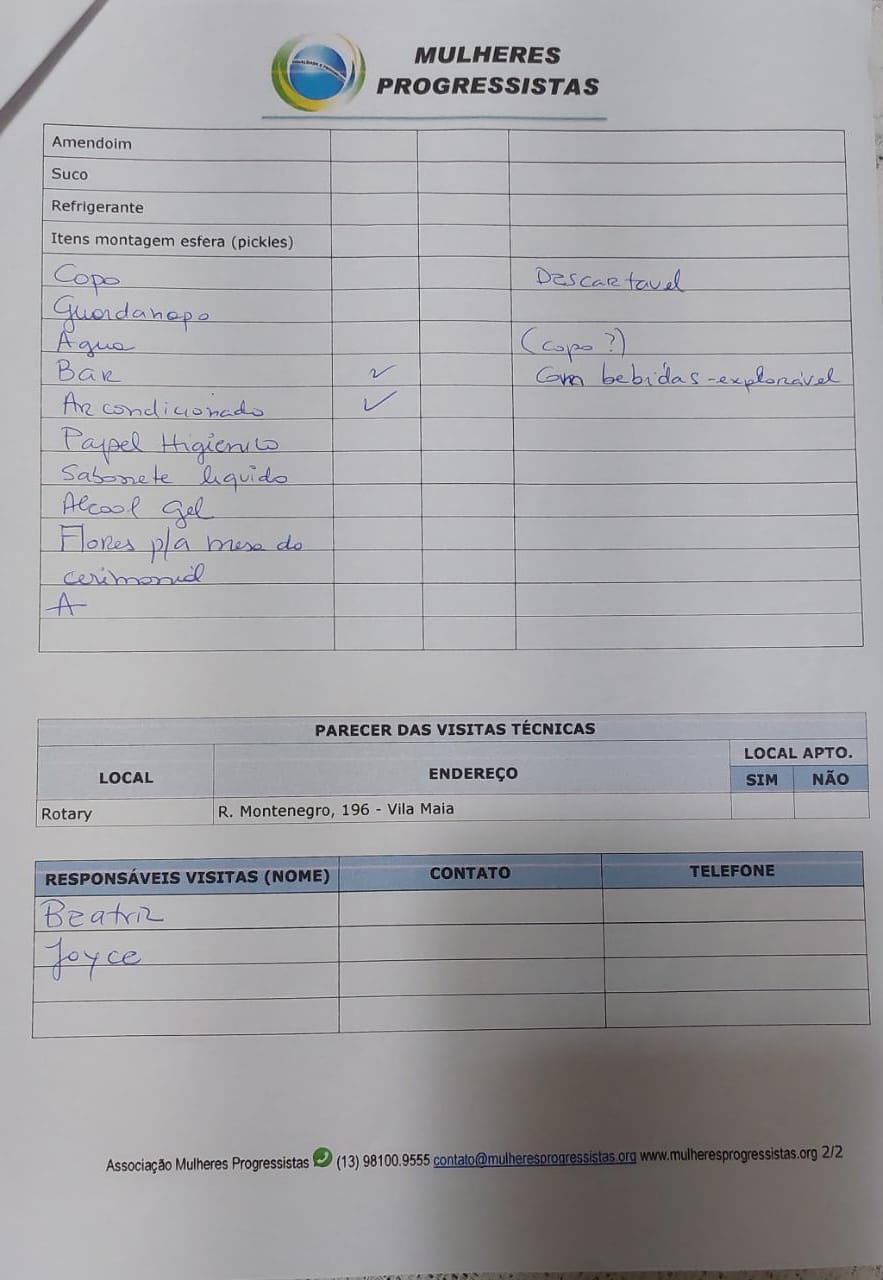 MULHERES
PROGRESSISTAS
Amendoim
Suco
Refrigerante
Itens montagem esfera (pickles)
Copo Descartavel
Guardanapo
Agua (copo?)
Bar ✓ Com bebidas-explorável
Ar condicionado ✓
Papel Higienico
Sabonete liquido
Alcool gel
Flores p/a mesa do
cerimonial
A
PARECER DAS VISITAS TÉCNICAS
LOCAL ENDEREÇO LOCAL APTO.
SIM NÃO
Rotary R. Montenegro, 196 - Vila Maia
RESPONSÁVEIS VISITAS (NOME) CONTATO TELEFONE
Beatriz
Joyce
Associação Mulheres Progressistas (13) 98100.9555 contato@mulheresprogressistas.org www.mulheresprogressistas.org 2/2